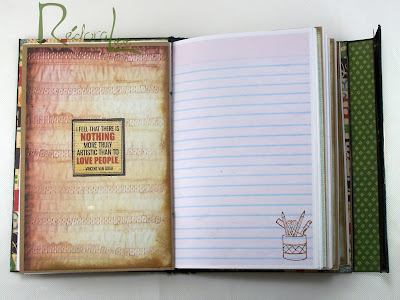 I FEEL THAT THERE IS
NOTHING
MORE TRULY
ARTISTIC THAN TO
LOVE PEOPLE.
- VINCENT VAN GOGH